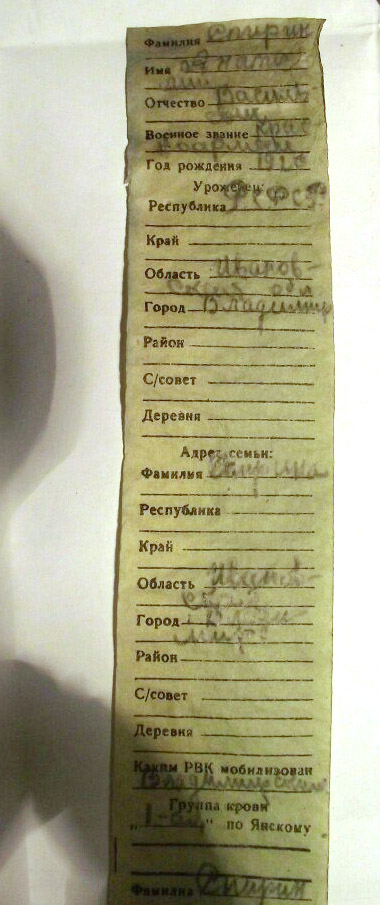 Фамилия Спирин
Имя Анато-
лий
Отчество Василь-
Военное звание крас
ноармеец
Год рождения
Уроженец:
Республика РСФСР
Край
Область Иванов-
ская обл
Город Владимир
Район
С/совет
Деревня
Адрес семьи:
Фамилия Спирина
Республика
Край
Область Иванов-
ская
Город Влади-
мир
Район
С/совет
Деревня
Каким РВК мобилизован
Владимирским
Группа крови
„1-ая" по Янскому
Фамилия Спирин